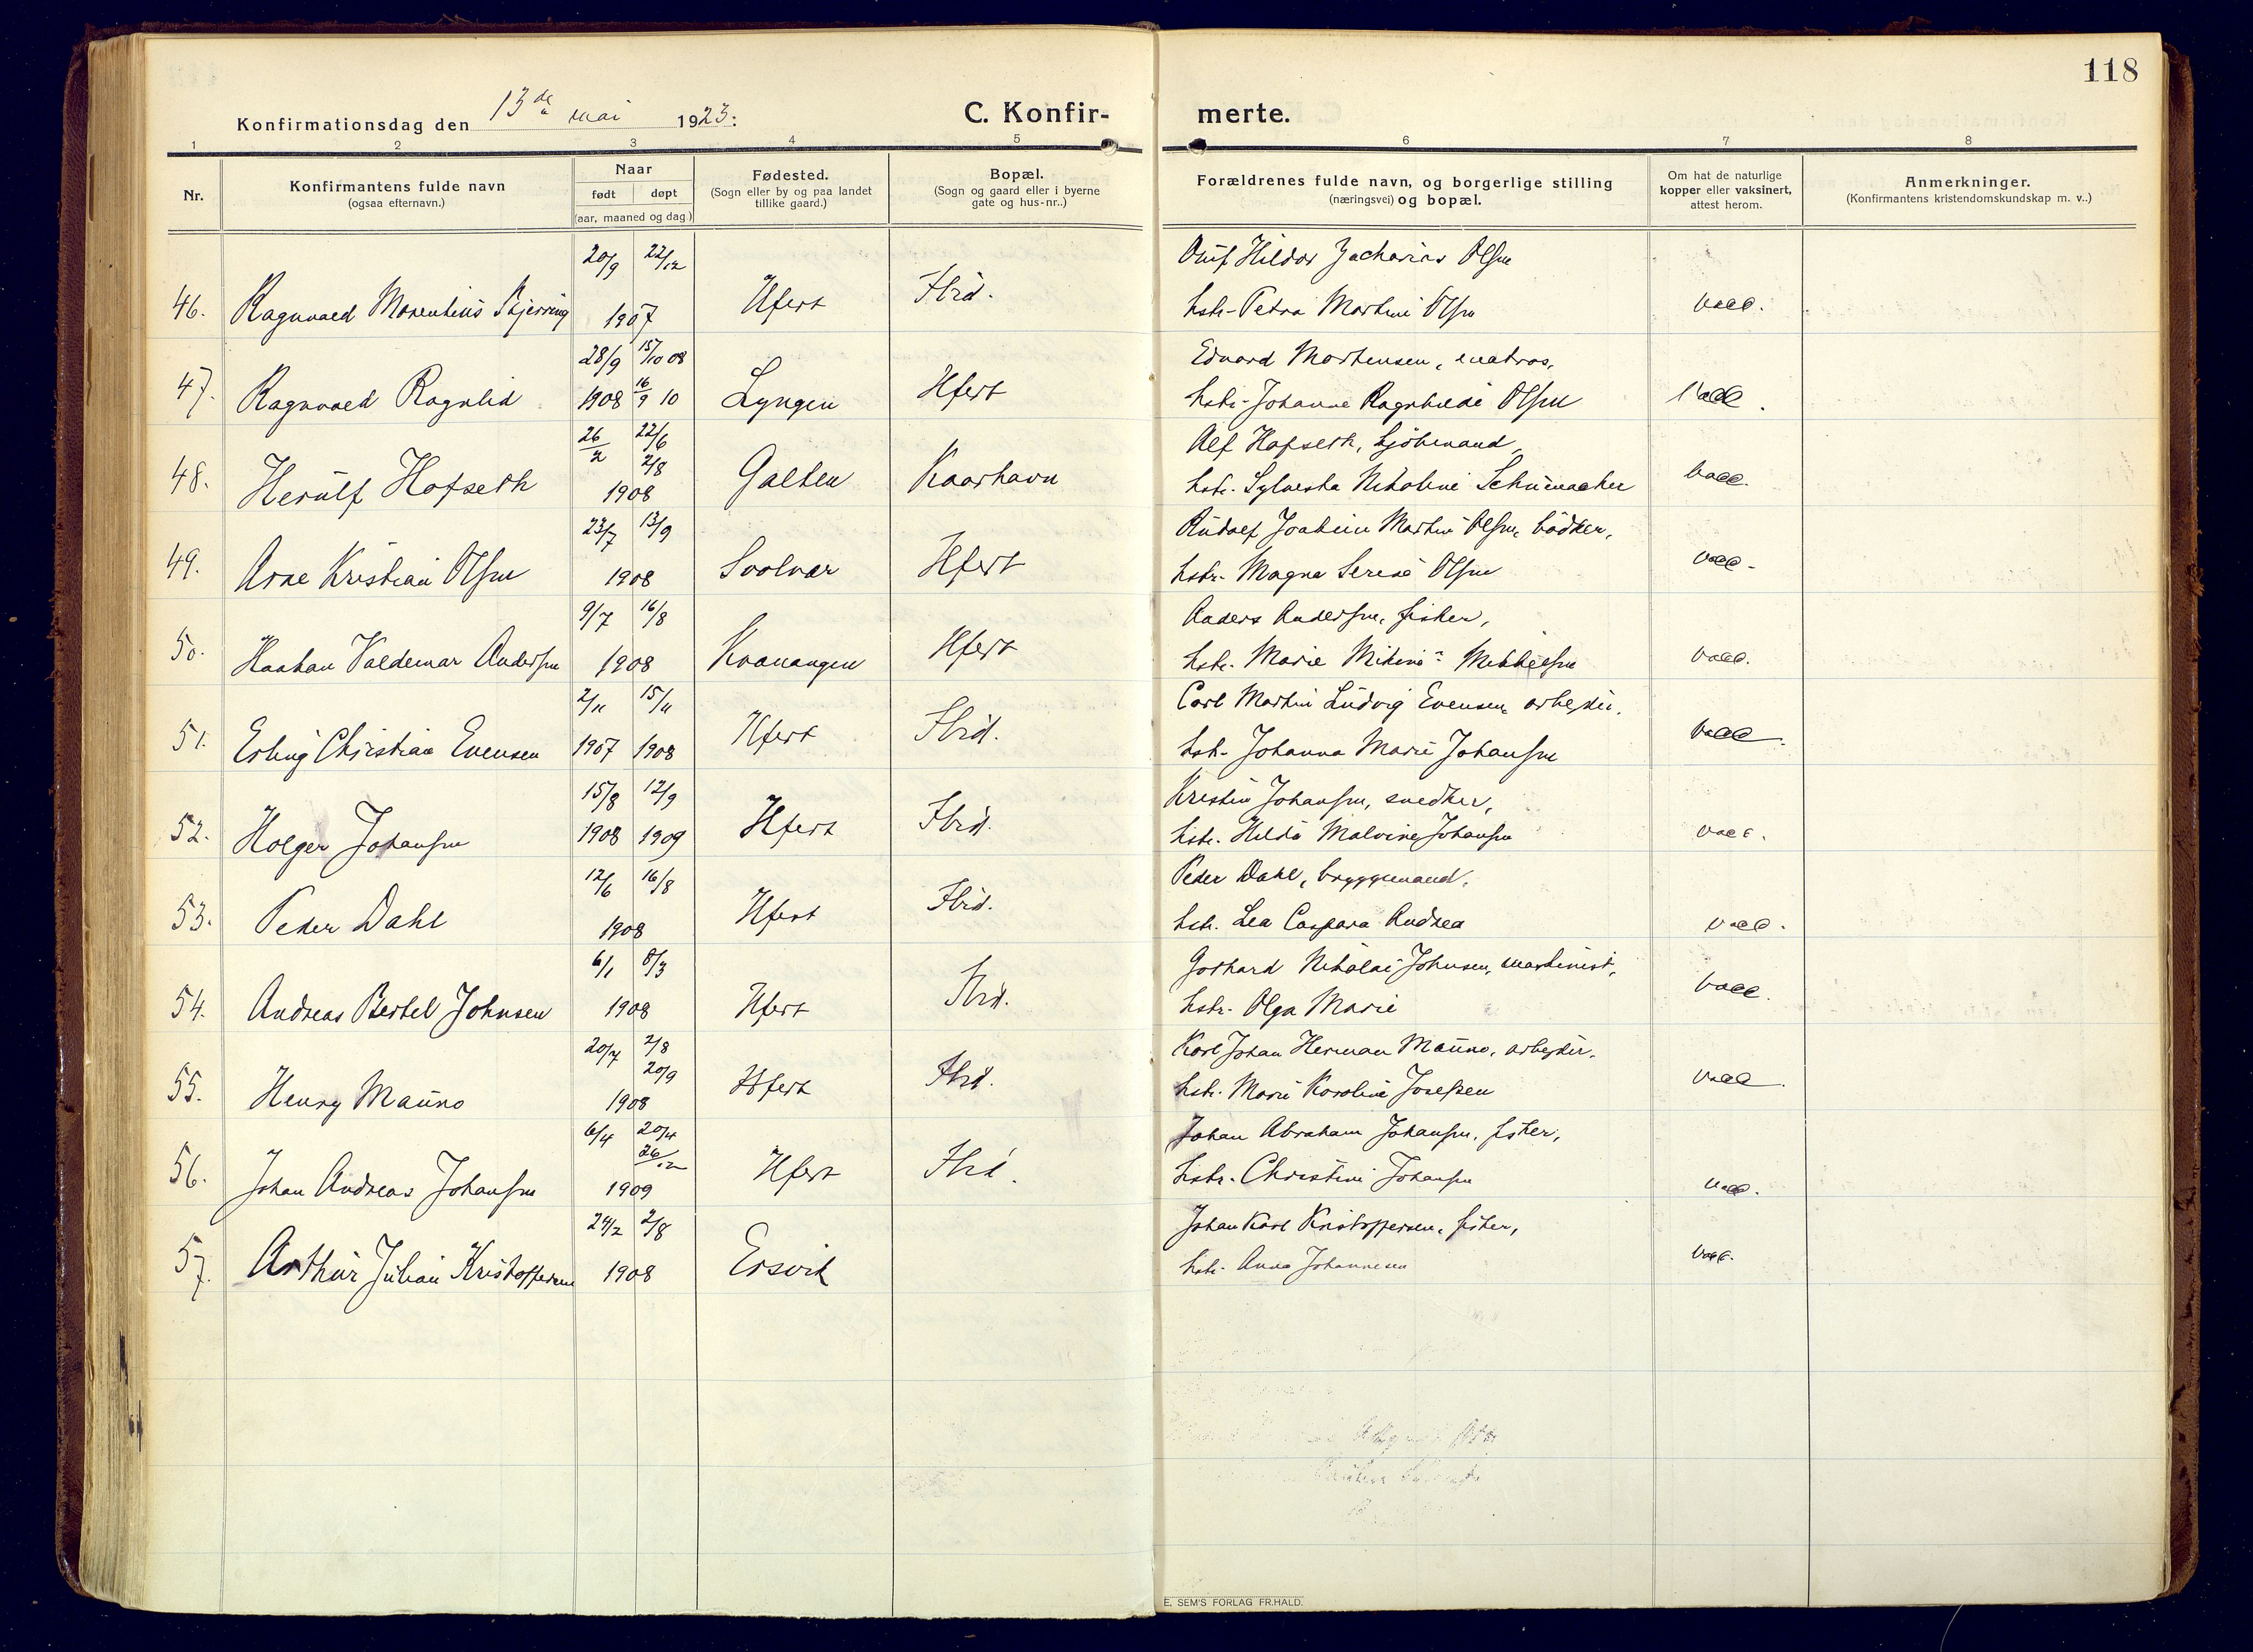 118
Konfirmationsdag den 13de mai 1923.
C. Konfir-merte.
1 2 3 4 5 6 7 8
Nr.
Konfirmantens fulde navn
(ogsaa efternavn.)
Naar
født døpt
(aar, maaned og dag)
Fødested.
(Sogn eller by og paa landet
tillike gaard.)
Bopæl.
(Sogn og gaard eller i byerne
gate og hus-nr..)
Forældrenes fulde navn, og borgerlige stilling
(næringsvei) og bopæl.
Om hat de naturlige
kopper eller vaksinert,
attest herom.
Anmerkninger.
(Konfirmantens kristendomskundskap m. v..)
20/9 22/12 Oluf Hildor Zacharias Olsen
46. Ragnvald Morentius Skjerving 1907 Hfest Ibid. hstr. Petra Martine Olsen vacc.
28/9 15/10 08 Edvard Mortensen, matros,
47. Ragnvald Ragnlid 1908 16/9 10 Lyngen Hfest hstr. Johanne Ragnhilde Olsen Vacc.
26/2 22/6 Alf Hofseth, sjöbmand,
2/8
48. Herulf Hofseth 1908 Galten Kaarhavn hstr. Sylvesta Nikoline Schumacher vacc.
23/7 13/9 Rudolf Joakim Martin Olsen, bödker,
49. Arne Kristian Olsen 1908 Svolvær Hfest hstr. Magna Serine Olsen vacc.
9/7 16/8 Anders Andersen, fisker,
50. Haakan Valdemar Andersen 1908 Kvænangen Hfest hstr. Marie Mikkelsen vacc.
2/11 15/11 Carl Martin Ludvig Evensen, arbejder,
51. Erling Christian Evensen 1907 1908 Hfest Ibid. hstr. Johanna Marie Johansen vacc.
15/8 12/9 Kristin Johansen, snedker,
52. Holger Johansen 1908 1909 Hfest Ibid. hstr. Hilda Malvine Johansen vacc.
12/6 16/8 Peder Dahl, bryggemand,
53. Peder Dahl 1908 Hfest Ibid. hstr. Lea Caspara Andrea vacc.
6/1 8/3 Gothard Nikolai Johnsen, maskinist,
54. Andreas Bertel Johnsen 1908 Hfest Ibid. hstr. Olga Marie vacc.
20/7 2/8 Karl Johan Herman Mauno, arbejder,
20/9
55. Henry Mauno 1908 Hfest Ibid. hstr. Marie Karoline Josefsen vacc.
6/4 20/4 Johan Abraham Johansen, fisker,
26/12
56. Johan Andreas Johansen 1909 Hfest Ibid. hstr. Christine Johansen vacc.
24/2 2/8 Johan Karl Kristoffersen, fisker,
57. Arthur Julian Kristoffersen 1908 Ersvik hstr. Anna Johannesen vacc.
E. SEM'S FORLAG FR.HALD.